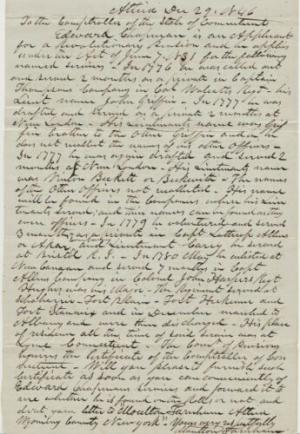 Attica Dec 29. 1846
To the Comptroller of the State of Connecticut
Edward Chapman is an Applicant
for a Revolutionary Pension and he applies
under an Act of June 7. 1832 for the following
named service - In 1776 he was called out
and served 2 months as a private in Captain
Thompsons Company in Col Regt - his
Lieut name John Griffin - In 1777 he was
drafted and served as a private 2 months at
New London - His Lieutenants name was Griffin
brother to the other Griffin and he
does not recollect the names of his other Officers -
In 1777 he was again drafted and served 2
months at New London - His Lieutenants name
was Beckett or Beckwith - The names
of the other Officers not recollected - His name
will be found in the Companies where his
servants served; and their names can in found as they
were officers - In 1778 he volunteered and served
3 months as a private in Capt
or and Lieutenant Carry he served
at Bristol R.I. - In 1780 May he enlisted at
New Canaan and served 7 months in Capt
Allens Company in Colonel John Harpers Regt
Hughes was his Major - The Regiment served at
Schoharie - Fort Plain - Fort Herkimer and
Fort Stanwix and in December marched to
Albany and were then discharged - His place
of residence all the time of service was at
Lyme Connecticut - The Comr of Pensions
requires the Certificate of the Comptroller of Con
necticut - Will you please furnish such
Certificate as soon as you can conveniently of
Edward Chapmans services and forward it to
me whether he is found on the Rolls or not and
direct your letter to Moulton Farnham Attica
Wyoming County New York" Yours very respectfully
Moulton Farnham